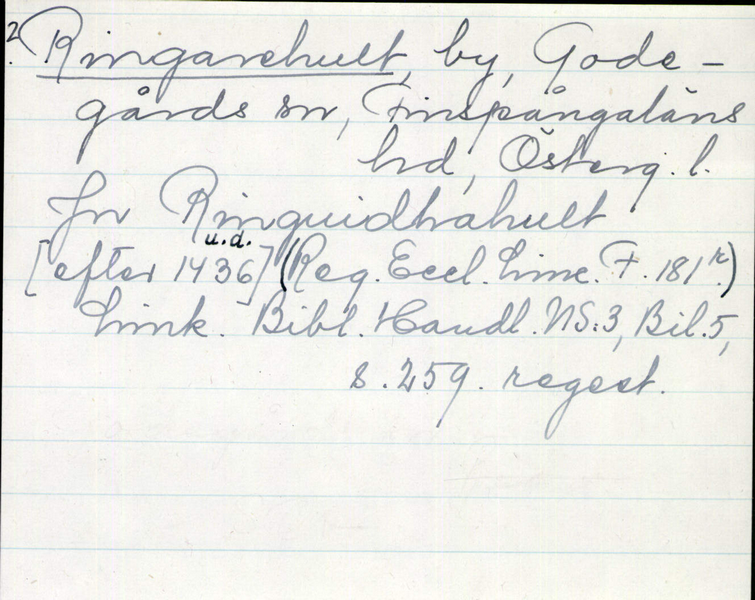 2. Ringarehult, by, Gode-
gårds sn, Finspångaläns
hd, Österg. l.
Jn Ringuidhrahult
u.d.
[efter 1436] (Reg. Eccl. Linc. F. 181 r.)
Link. Bibl. Handl. NS:3, Bil. 5,
s. 259. regest.